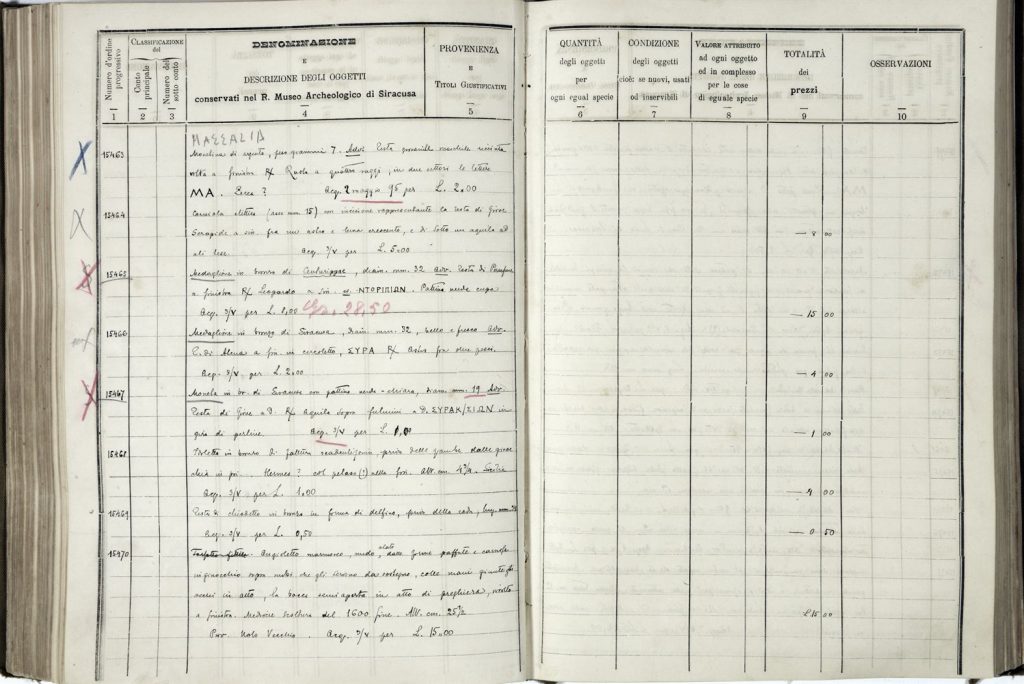 Numero d'ordine progressivo
CLASSIFICAZIONE del
Conto principale
Numero del sotto conto
DENOMINAZIONE
E
DESCRIZIONE DEGLI OGGETTI
conservati nel R. Museo Archeologico di Siracusa
PROVENIENZA
E
TITOLI GIUSTIFICATIVI
QUANTITÀ
degli oggetti
per
ogni egual specie
CONDIZIONE
degli oggetti
cioè: se nuovi, usati
od inservibili
VALORE ATTRIBUITO
ad ogni oggetto
od in complesso
per le cose
di eguale specie
TOTALITÀ
dei
prezzi
OSSERVAZIONI
1 2 3 4 5 6 7 8 9 10
ΜΑΣΣΑΛΙΑ
15463 di argento, peso grammi 7. Adv. Testa giovanile
volta a sinistra R/ Ruota a quattro raggi, in due settori le lettere
MA. Lecce? Acq. 2 maggio 95 per L. 2.00
15464 (asse mm. 15) con incisione rappresentante la testa di Giove
Serapide a sin. fra un astro e luna crescente, e di sotto un aquila ad
ali Acq. 3/V per L. 5.00
— 8 00
15465 Medaglione in bronzo di Centuripae, diam. mm. 32 Adv. Testa di
a sinistra R/ Leopardo a sin. ΝΤΟΡΙΠΙΝΩΝ. Patina verde cupa
Acq. 3/V per L. 28,50
— 15 00
15466 Medaglione in bronzo di Siracusa, diam. mm. 32, bello e fresco Adv.
T. di Atena a sin. in cerchietto, ΣΥΡΑ R/ Astro fra due pesci.
Acq. 3/V per L. 2.00
— 4 00
15467 Moneta in br. di Siracusa con patina verde-chiara, diam. mm. 19 Adv.
Testa di Giove a D. R/ Aquila sopra fulmine a D. ΣΥΡΑΚ/ΣΙΩΝ in
giro di perline. Acq. 3/V per L.
— 1 00
15468 in bronzo di fattura scadentissima, priva delle gambe dalle
in poi. Hermes? col petaso (?) nella sin. Alt. cm.
Acq. 3/V per L. 1.00
— 4 00
15469 Testa di chiodetto in bronzo in forma di delfino, priva della coda,
Acq. 3/V per L. 0,50
— 0 50
15470 Angioletto marmoreo, nudo, alato dalle forme paffute e carnose
inginocchio sopra nubi che gli servono da sostegno, colle mani giunte gli
occhi in alto, la bocca semiaperta in atto di preghiera, volto
a sinistra. Mediocre scoltura del 1600 fine. Alt. cm. 25 1/2
Prov. Noto Vecchio. Acq. 3/V per L. 15.00
£ 15 00